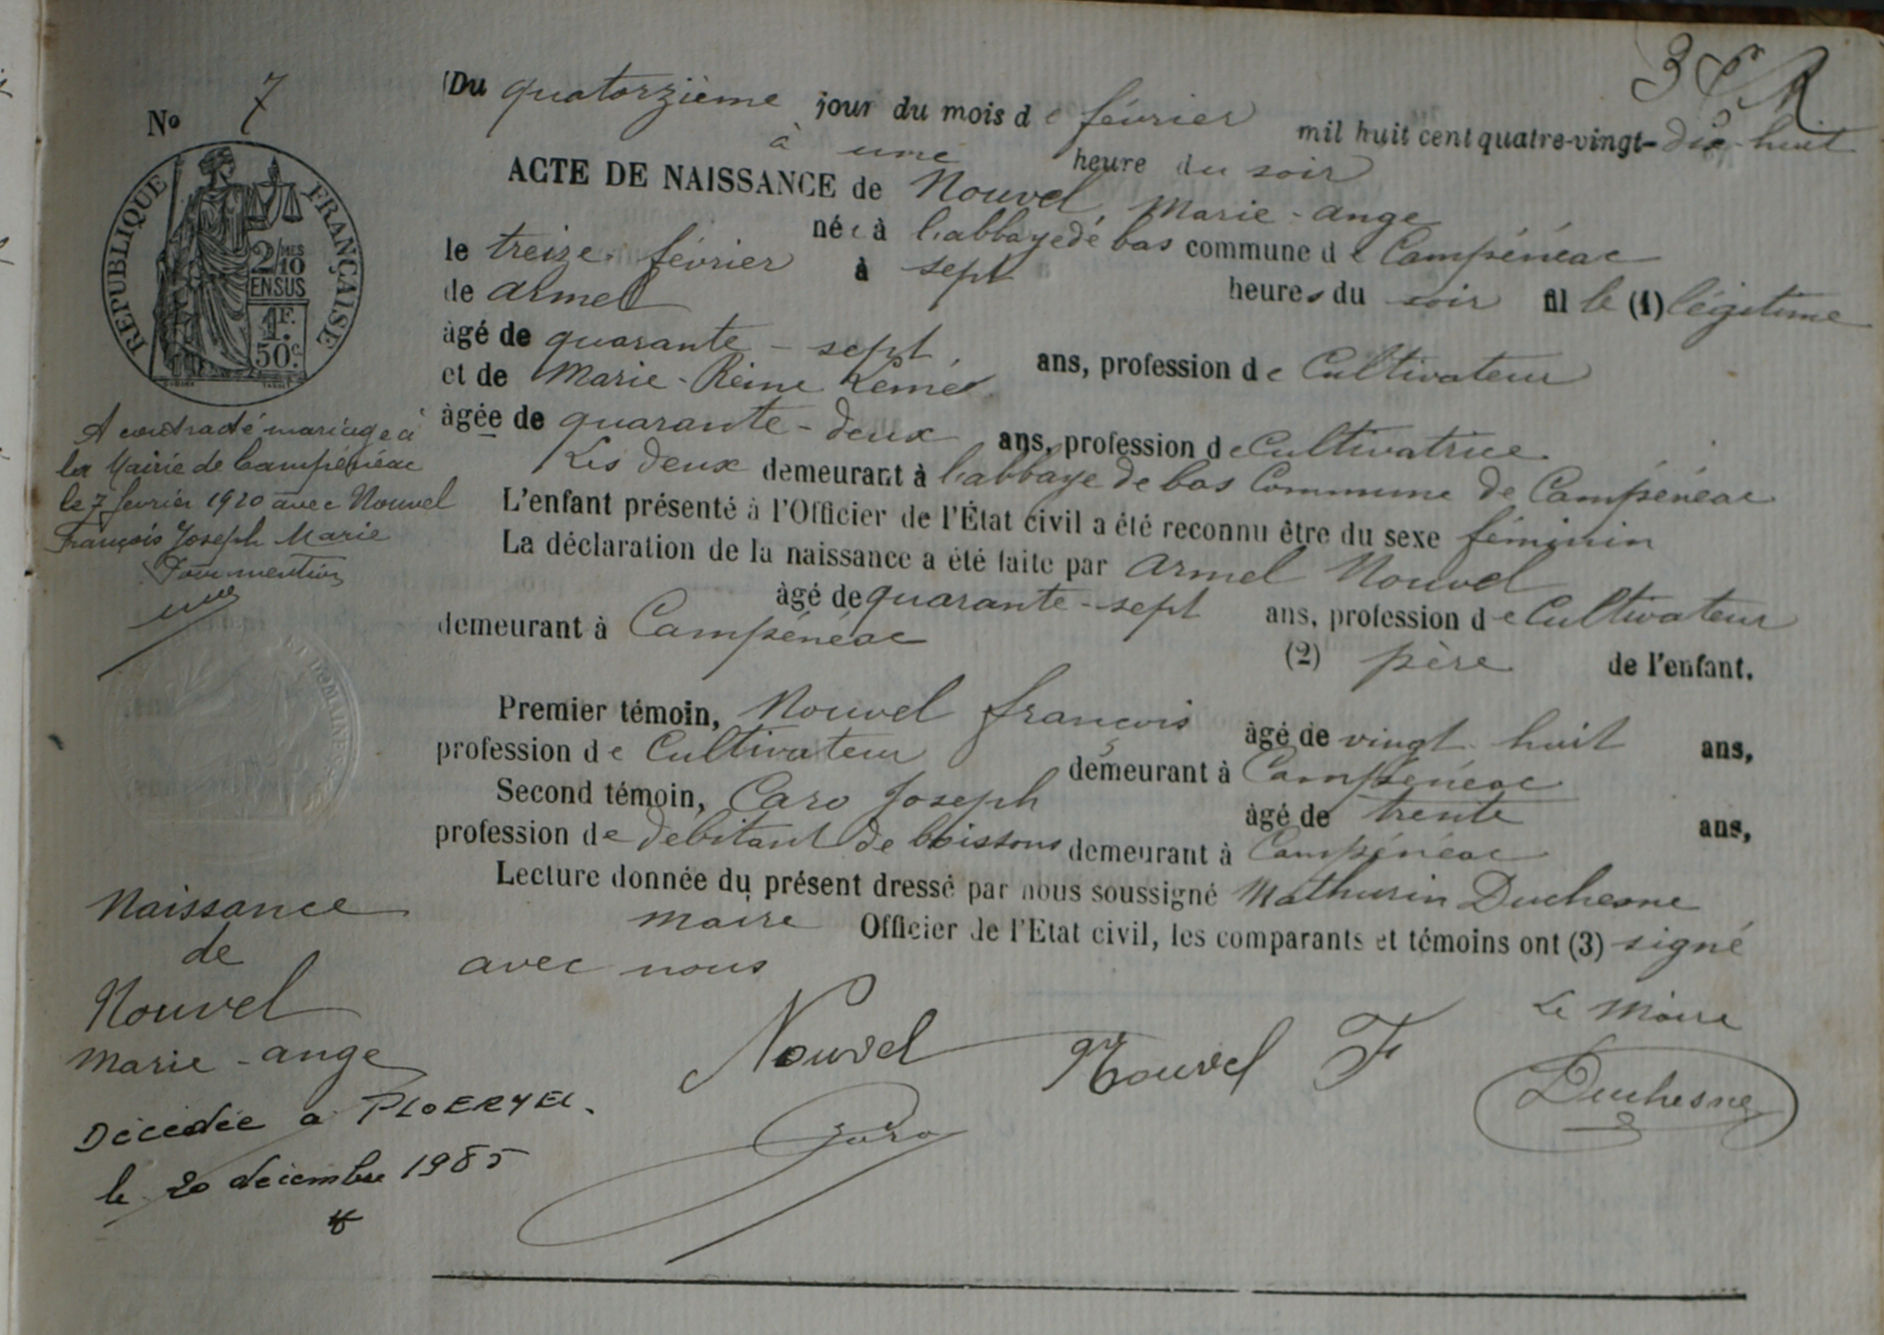 3e R
No 7
Du quatorzième jour du mois de février mil huit cent quatre-vingt-dix-huit
à une heure du soir
ACTE DE NAISSANCE de Nouvel, Marie-ange
née à l'abbaye de bas commune de Campénéac
le treize février à sept heures du soir fille (1) légitime
de Armel
âgé de quarante-sept, ans, profession de Cultivateur
et de Marie-Reine
âgée de quarante-deux ans, profession de Cultivatrice
Les deux demeurant à l'abbaye de bas Commune de Campénéac
L'enfant présenté à l'Officier de l'État civil a été reconnu être du sexe féminin
La déclaration de la naissance a été faite par Armel Nouvel
âgé de quarante-sept ans, profession de Cultivateur
demeurant à Campénéac (2) père de l'enfant.
Premier témoin, Nouvel françois âgé de vingt huit ans,
profession de Cultivateur demeurant à Campénéac
Second témoin, Caro Joseph âgé de trente ans,
profession de debitant de boissons demeurant à Campénéac
Lecture donnée du présent dressé par nous soussigné Mathurin Duchesne
maire Officier de l'Etat civil, les comparants et témoins ont (3) signé
avec nous
Nouvel Nouvel F Le Maire
Caro Duchesne
RÉPUBLIQUE FRANÇAISE
2/10MES
EN SUS
1F.
50c
A contracté mariage à
la Mairie de Campénéac
le 7 février 1920 avec Nouvel
François Joseph Marie
Pour mention
ET DOMAINES
Naissance
de
Nouvel
Marie-ange
Décédée à PLOERMEL.
le 20 décembre 1985